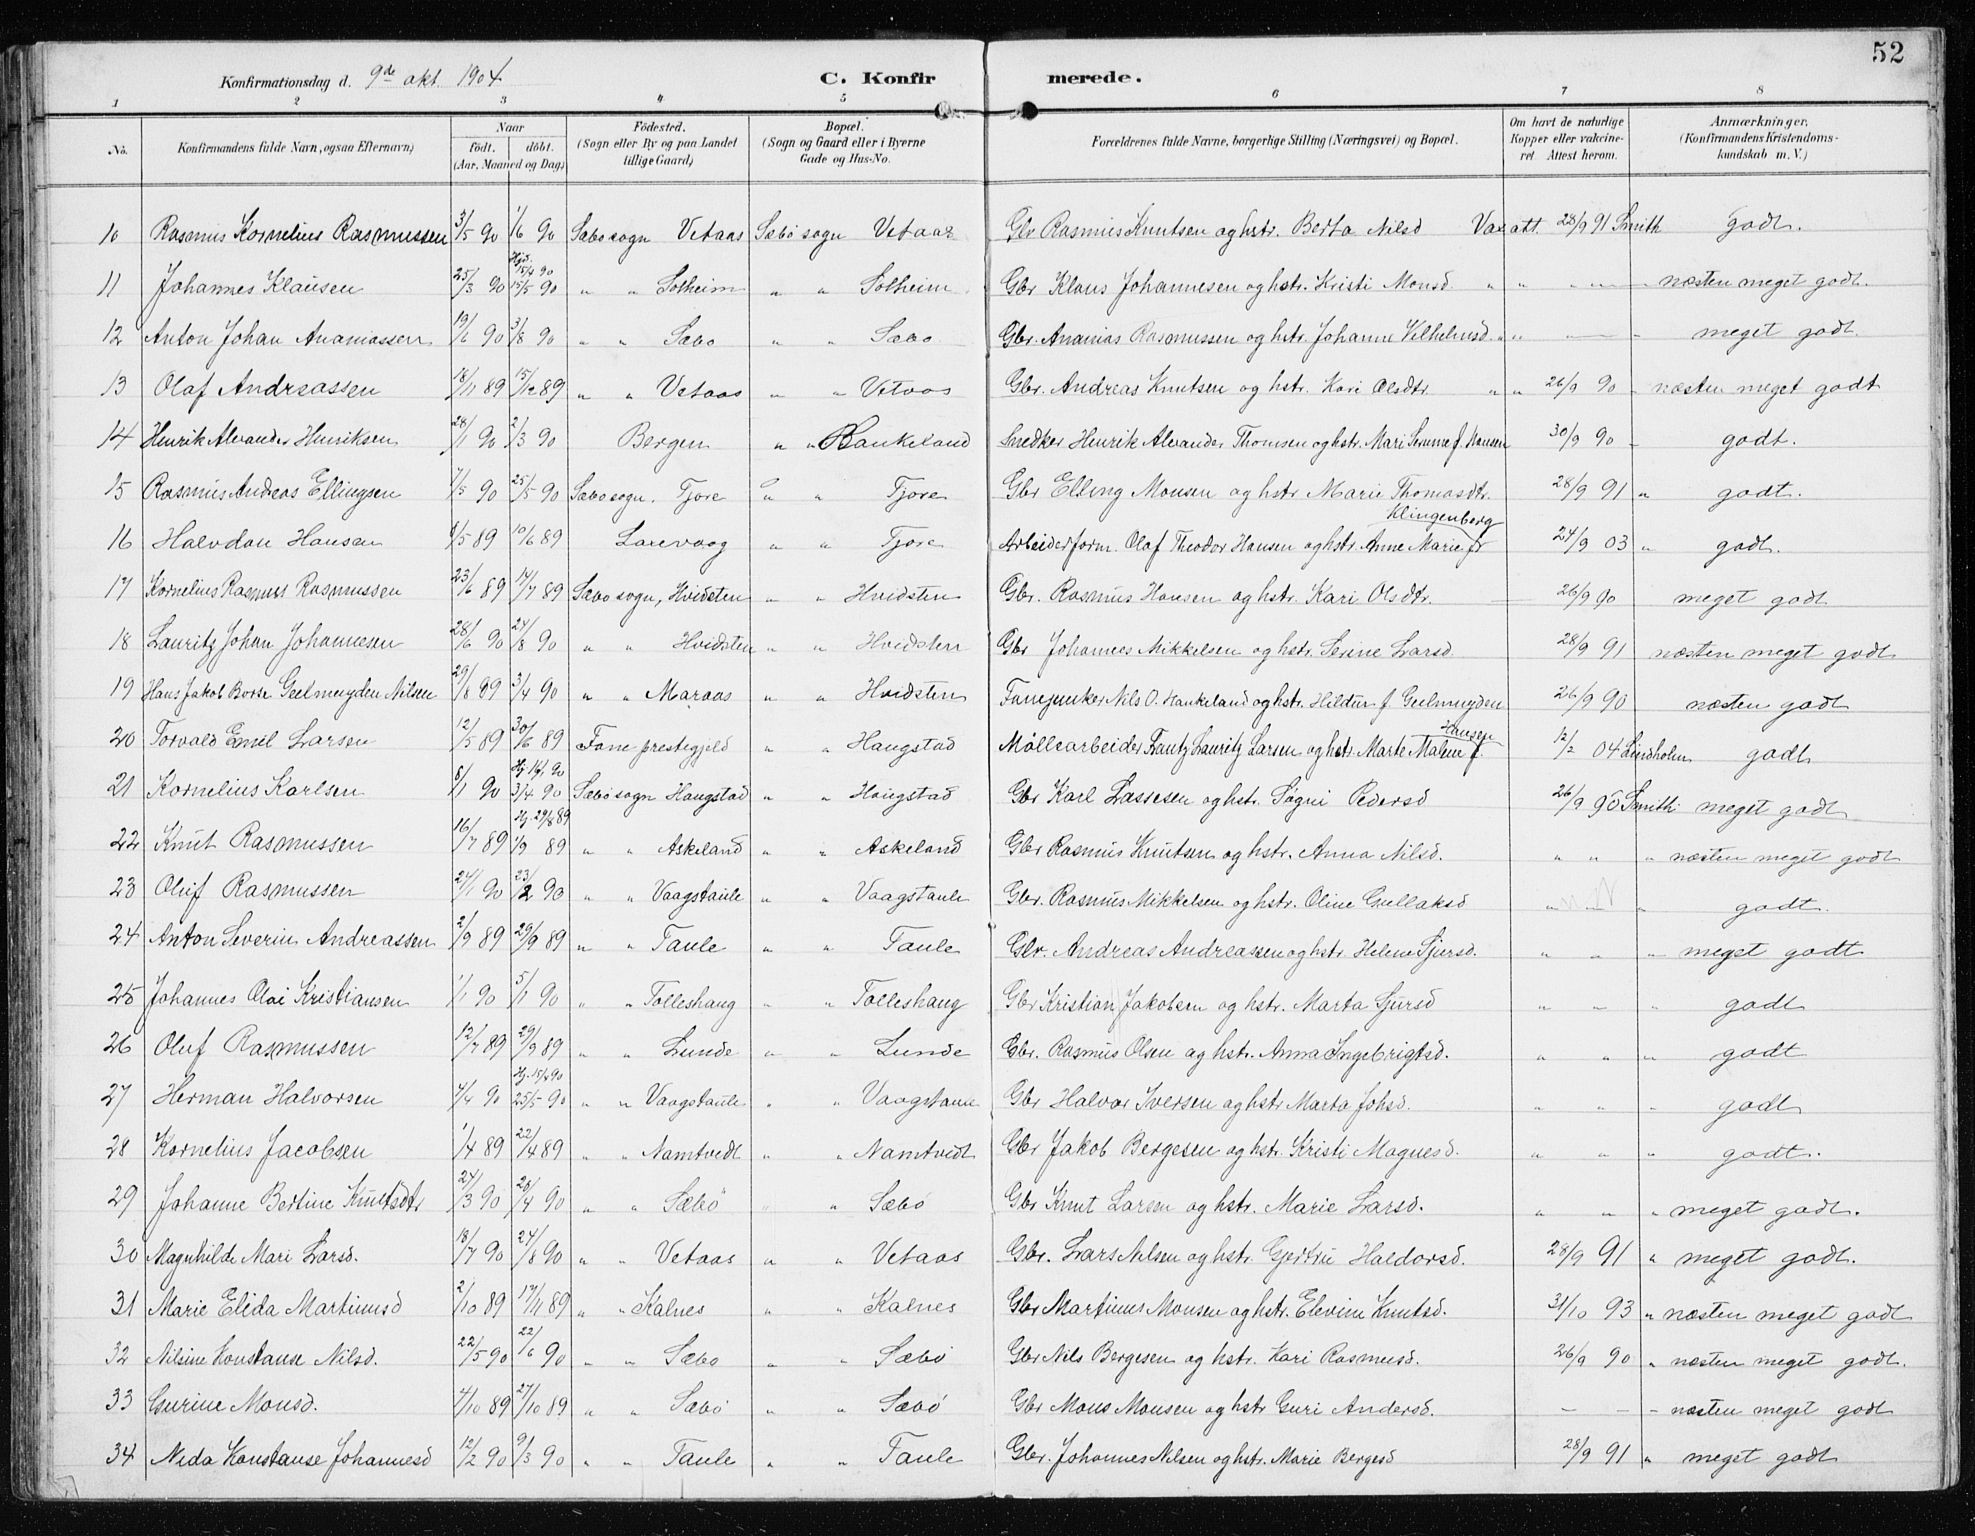 52
Konfirmationsdag d. 9de okt. 1904 C. Konfir merede.
1 2 3 4 5 6 7 8
No. Konfirmandens fulde Navn, ogsaa Efternavn) Naar födt. döbt. (Aar, Maaned og Dag) Födested. (Sogn eller By og paa Landet tillige Gaard) Bopæl. (Sogn og Gaard eller i Byerne Gade og Hus-No. Forældrenes fulde Navne, borgerlige Stilling (Næringsvei) og Bopæl. Om havt de naturlige Kopper eller vakcineret. Attest herom. Anmærkninger. (Konfirmandens Kristendomskundskab m. V.)
10 Rasmus Kornelius Rasmussen 3/5 90 1/6 90 Sæbo sogn Vetaas Sæbö sogn Vetaas Gbr Rasmus Knutsen og hstr. Berta Nilsd Vax att. 28/9 91 Smith godt.
11 Johannes Klausen 25/3 90 Hjd. 15/4 90 15/5 90 " " Solheim " " Solheim Gbr Klaus Johannesen og hstr. Kristi Monsd. " " " — " næsten meget godt.
12 Anton Johan Ananiassen 19/6 90 3/8 90 " " Sæbo " " Sæbo Gbr. Ananias Rasmussen og hstr. Johanne Vilhelmsd. " " — " meget godt.
13 Olaf Andreassen 18/11 89 15/12 89 " " Vetaas " " Vetaas Gbr. Andreas Knutsen og hstr. Kari Olsdtr " " 26/9 90 " næsten meget godt
14 Henrik Alexander Henriksen 28/1 90 2/3 90 Bergen " " Hankeland Snedker Henrik Alexander Thomsen og hstr. Mari Serine f. Hansen 30/9 90 " godt.
15 Rasmus Andreas Ellingsen 7/5 90 25/5 90 Sæbo sogn. Tjore " " Tjore Gbr Elling Monsen og hstr Marie Thomasdtr. 28/9 91 " godt.
16 Halvdan Hansen 8/5 89 10/6 89 Laxevaag " " Tjore Arbeiderform. Olaf Theodor Hansen og hstr. Anne Marie f. Klingenberg 24/9 03 " godt.
17 Kornelius Rasmus Rasmussen 23/6 89 14/7 89 Sæbo sogn, Hvidsten " " Hvidsten Gbr. Rasmus Hansen og hstr. Kari Olsdtr. 26/9 90 meget godt
18 Lauritz Johan Johannesen 28/6 90 24/8 90 " " Hvidsten " " Hvidsten Gbr Johannes Mikkelsen og hstr. Serine Larsd. 28/9 91 næsten meget godt
19 Hans Jakob Borse Geelmuyden Nilsen 29/8 89 3/4 90 " " Maraas " " Hvidsten Fanejunker Nils O. Hankeland og hstr. Hildur f. Geelmuyden 26/9 90 næsten godt
20 Torvald Emil Larsen 12/5 89 30/6 89 Fane prestegjeld " " Haugstad Møllearbeider Frantz Lauritz Larsen og hstr. Marte Malene f. Hansen 12/2 04 Lindholm godt
21 Kornelius Karlsen 8/1 90 Hj. 19/1 90 3/4 90 Sæbö sogn Haugstad " " Haugstad Gbr Karl Lassesen og hstr. Søgni Pedersd 26/9 90 Smith meget godt
22 Knut Rasmussen 16/7 89 Hj. 29/8 89 1/9 89 " " Askeland " " Askeland Gbr Rasmus Knutsen og hstr. Anna Nilsd. " " " næsten meget godt
23 Oluf Rasmussen 24/1 90 23/2 90 " " Vaagstaule " " Vaagstaule Gbr. Rasmus Mikkelsen og hstr. Oline Gullaksd " " " godt.
24 Anton Severin Andreassen 2/9 89 29/9 89 " " Taule " " Taule Gbr. Andreas Andreassen og hstr. Helene Sjursd. " " " meget godt
25 Johannes Olai Kristiansen 1/1 90 5/1 90 " " Tolleshaug " " Tolleshaug Gbr Kristian Jakobsen og hstr. Marta Sjursd " " " godt
26 Oluf Rasmussen 12/7 89 29/9 89 " " Lunde " " Lunde Gbr. Rasmus Olsen og hstr. Anna Ingebrigtsd. " " " godt
27 Herman Halvorsen 4/4 90 Hj. 15/4 90 25/5 90 " " Vaagstaule " " Vaagstaule Gbr Halvor Iversen og hstr Marta Johsd. " " " godt
28 Kornelius Jacobsen 1/4 89 22/4 89 " " Namtvedt " " Namtvedt Gbr Jakob Bergesen og hstr. Kristi Magnesd. " " " godt.
29 Johanne Bertine Knutsdtr 24/3 90 20/4 90 " " Sæbö " " Sæbö Gbr Knut Larsen og hstr. Marie Larsd. " " " meget godt.
30 Magnhilde Mari Larsd. 18/7 90 24/8 90 " " Vetaas " " Vetaas Gbr. Lars Nilsen og hstr. Gjertru Haldorsd. 28/9 91 " meget godt.
31 Marie Elida Martinusd 2/10 89 17/11 89 " " Kalnes " " Kalnes Gbr Martinus Monsen og hstr. Elevine Knutsd. 31/10 93 " næsten meget godt
32 Nilsine Konstanse Nilsd. 22/5 90 22/6 90 " " Sæbo " " Sæbö Gbr Nils Bergesen og hstr. Kari Rasmusd. 26/9 90 " næsten meget godt.
33 Gurine Monsd. 4/10 89 27/10 89 " " Sæbö " " Sæbö Gbr Mons Monsen og hstr Guri Andersd. — — — næsten meget godt
34 Neda Konstanse Johannesd 12/2 90 9/3 90 " " Taule " " Taule Gbr. Johannes Nilsen og hstr. Marie Bergesd 28/9 91 " meget godt